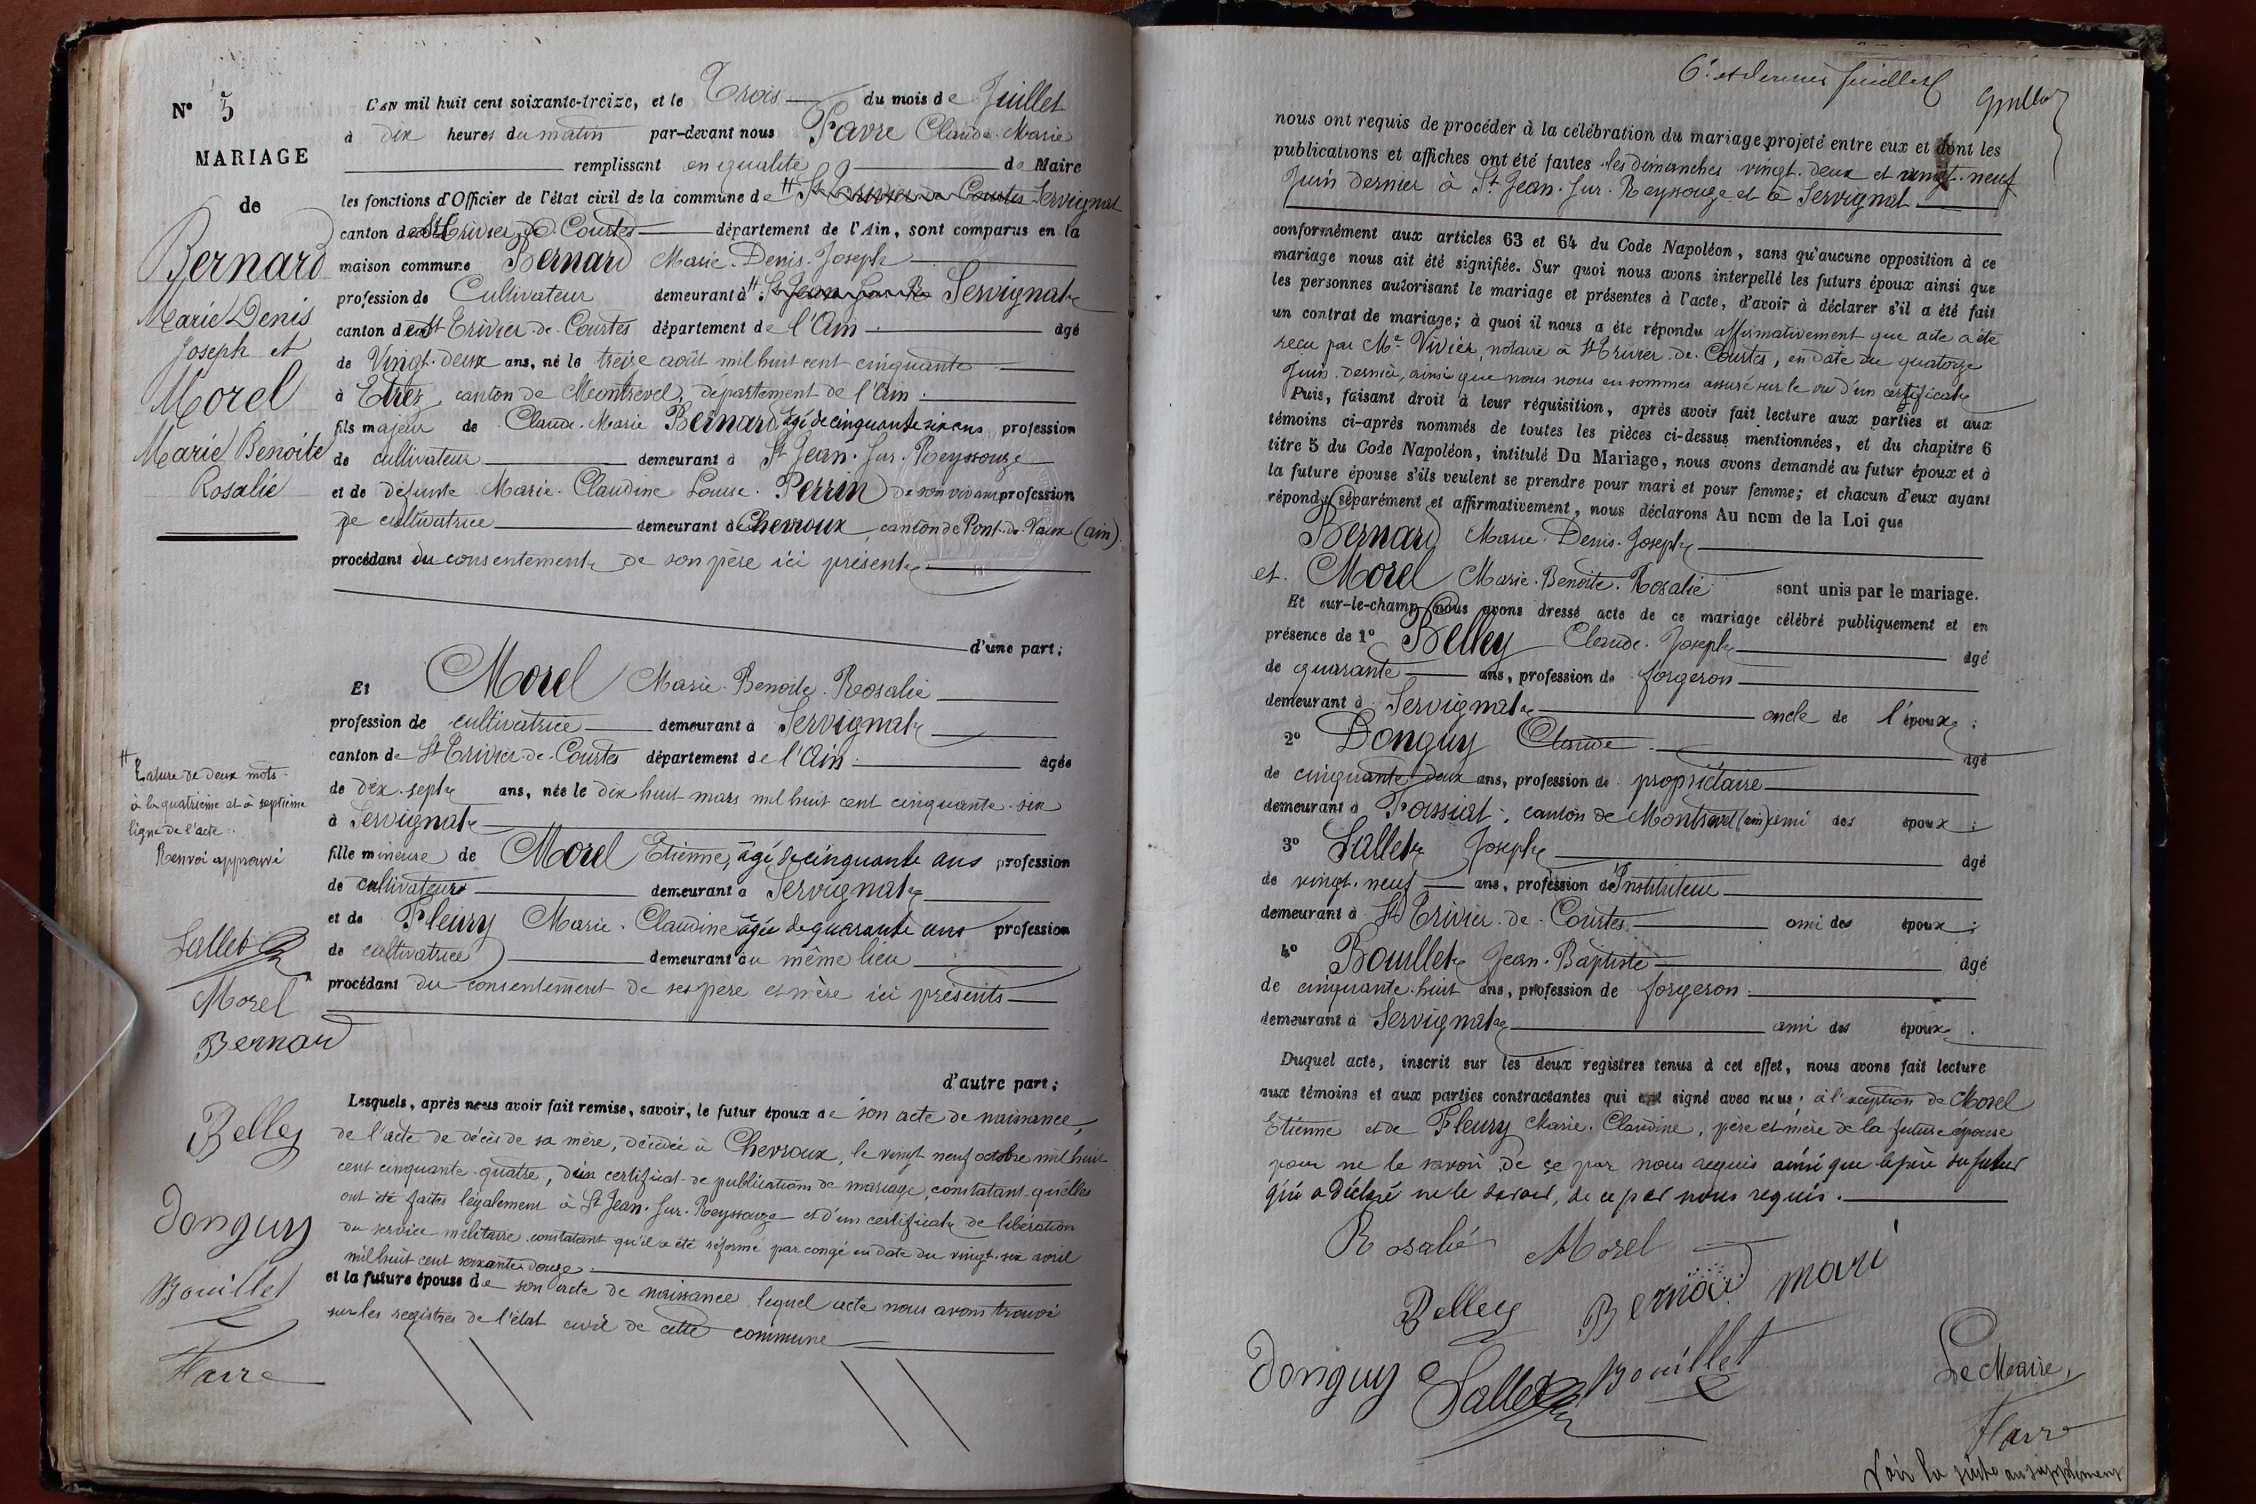 N° 5
MARIAGE
de
Bernard
Marie Denis
Joseph et
Morel
Marie Benoite
Rosalie
L'an mil huit cent soixante-treize, et le Trois du mois de Juillet
à dix heures du matin par-devant nous Favre Claude Marie
remplissant en qualité de Maire
les fonctions d'Officier de l'état civil de la commune de # St Trivier de Courtes Servignat
canton de St Trivier de Courtes département de l'Ain, sont comparus en la
maison commune Bernard Marie Denis Joseph
profession de Cultivateur demeurant à # St Jean sur R Servignat
canton de St Trivier de Courtes département de l'Ain âgé
de Vingt deux ans, né le treize août mil huit cent cinquante
à Etrez, canton de Montrevel, département de l'Ain
fils majeur de Claude Marie Bernard âgé de cinquante six ans profession
de cultivateur demeurant à St Jean sur Reyssouze
et de défunte Marie Claudine Louise Perrin de son vivant profession
de cultivatrice demeurant à Chevroux, canton de Pont de Vaux (ain)
procédant du consentement de son père ici présent
d'une part;
Et Morel Marie Benoite Rosalie
profession de cultivatrice demeurant à Servignat
canton de St Trivier de Courtes département de l'Ain âgée
de dix sept ans, née le dix huit mars mil huit cent cinquante six
à Servignat
fille mineure de Morel Etienne, âgé de cinquante ans profession
de cultivateur demeurant à Servignat
et de Fleury Marie Claudine âgée de quarante ans profession
de cultivatrice demeurant au même lieu
procédant du consentement de ses père et mère ici présents
d'autre part;
Lesquels, après nous avoir fait remise, savoir, le futur époux de son acte de naissance,
de l'acte de décès de sa mère, décédée à Chevroux, le vingt neuf octobre mil huit
cent cinquante quatre, d'un certificat de publications de mariage, constatant qu'elles
ont été faites légalement à St Jean sur Reyssouze et d'un certificat de libération
du service militaire constatant qu'il a été réformé par congé en date du vingt six avril
mil huit cent soixante douze
et la future épouse de son acte de naissance lequel acte nous avons trouvé
sur les registres de l'état civil de cette commune
# Rature de deux mots
à la quatrième et à septième
ligne de l'acte.
Renvoi approuvé
Sallet
Morel
Bernard
Belley
Donguy
Bouillet
Favre
6e et dernier feuillet
nous ont requis de procéder à la célébration du mariage projeté entre eux et dont les
publications et affiches ont été faites les dimanches vingt deux et vingt neuf
Juin dernier à St Jean sur Reyssouze et à Servignat
conformément aux articles 63 et 64 du Code Napoléon, sans qu'aucune opposition à ce
mariage nous ait été signifiée. Sur quoi nous avons interpellé les futurs époux ainsi que
les personnes autorisant le mariage et présentes à l'acte, d'avoir à déclarer s'il a été fait
un contrat de mariage; à quoi il nous a été répondu affirmativement que acte a été
reçu par Me Vivier, notaire à St Trivier de Courtes, en date du quatorze
Juin dernier, ainsi que nous nous en sommes assuré sur le vu d'un certificat
Puis, faisant droit à leur réquisition, après avoir fait lecture aux parties et aux
témoins ci-après nommés de toutes les pièces ci-dessus mentionnées, et du chapitre 6
titre 5 du Code Napoléon, intitulé Du Mariage, nous avons demandé au futur époux et à
la future épouse s'ils veulent se prendre pour mari et pour femme; et chacun d'eux ayant
répondu séparément et affirmativement, nous déclarons Au nom de la Loi que
Bernard Marie Denis Joseph
et Morel Marie Benoite Rosalie sont unis par le mariage.
Et sur-le-champ nous avons dressé acte de ce mariage célébré publiquement et en
présence de 1° Belley Claude Joseph âgé
de quarante ans, profession de forgeron
demeurant à Servignat oncle de l'époux;
2° Donguy Claude âgé
de cinquante deux ans, profession de propriétaire
demeurant à Foissiat, canton de Montrevel (ain) ami des époux;
3° Sallet Joseph âgé
de vingt neuf ans, profession d'Instituteur
demeurant à St Trivier de Courtes ami des époux;
4° Bouillet Jean Baptiste âgé
de cinquante huit ans, profession de forgeron
demeurant à Servignat ami des époux.
Duquel acte, inscrit sur les deux registres tenus à cet effet, nous avons fait lecture
aux témoins et aux parties contractantes qui ont signé avec nous; à l'exception de Morel
Etienne et de Fleury Marie Claudine, père et mère de la future épouse
pour ne le savoir de ce par nous requis ainsi que le père du futur
qui a déclaré ne le savoir, de ce par nous requis.
Rosalie Morel
Belley Bernard mari
Donguy Sallet Bouillet
Le Maire,
Favre
Voir la suite au supplément